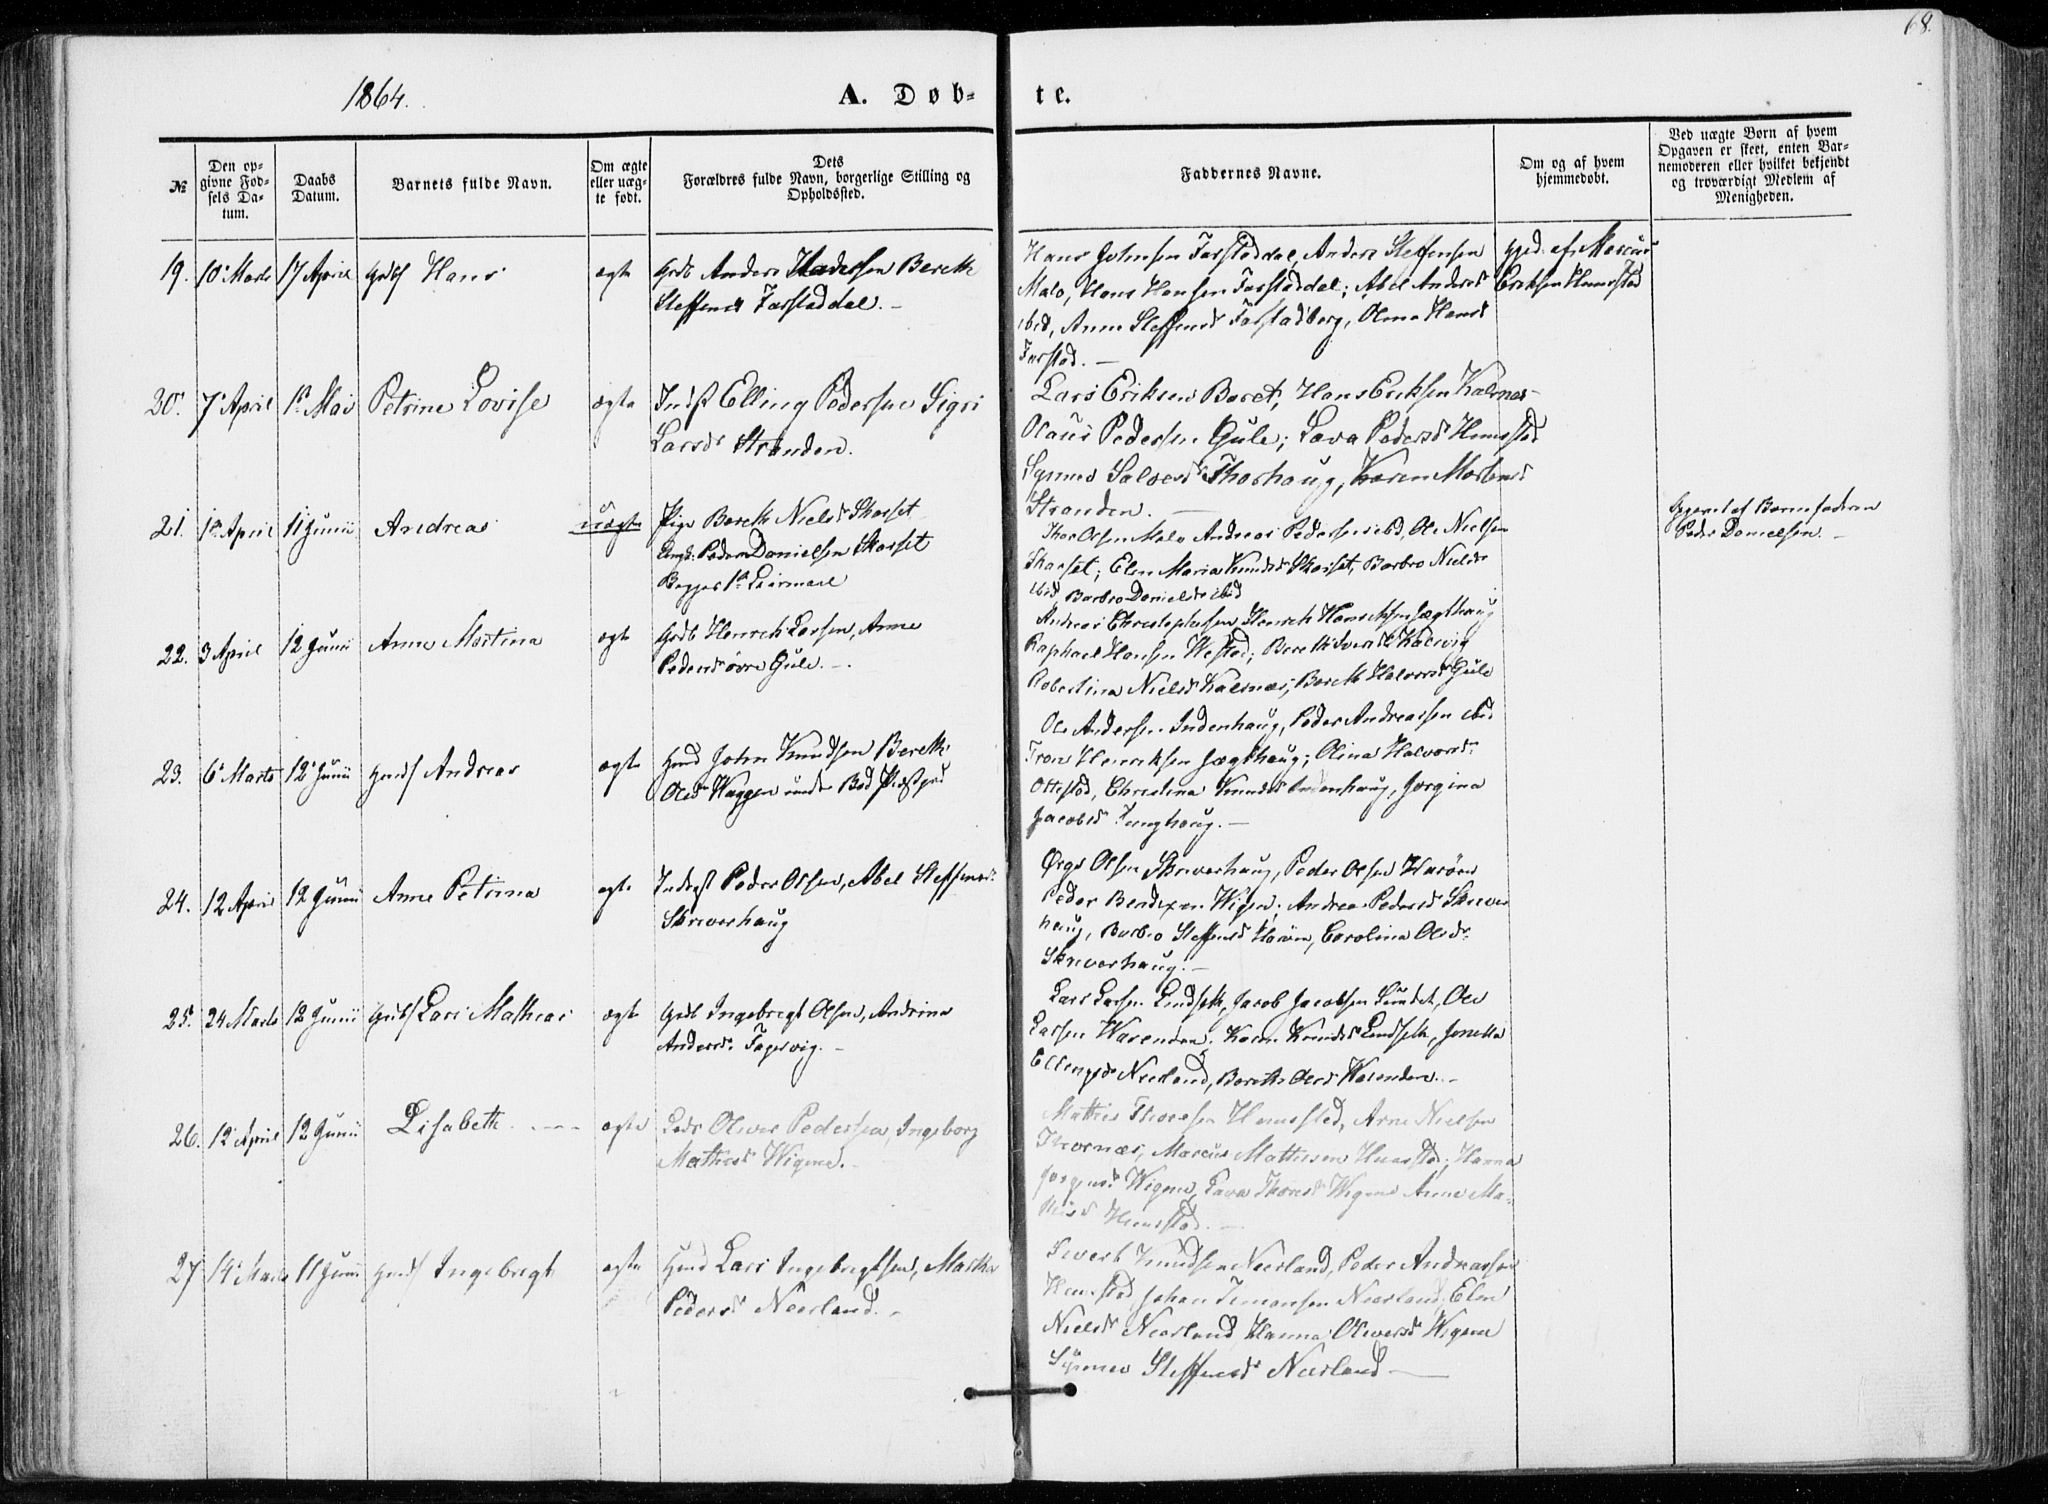 68.
1864.
A. Døb-
te.
№
Den op-
givne Fød-
sels Da-
tum.
Daabs
Datum.
Barnets fulde Navn.
Om ægte
eller uæg-
te født.
Dets
Forældres fulde Navn, borgerlige Stilling og
Opholdssted.
Faddernes Navne.
Om og af hvem
hjemmedøbt.
Ved uægte Børn af hvem
Opgaven er skeet, enten Bar-
nemoderen eller hvilket bekjendt
og troværdigt Medlem af
Menigheden.
19. 10 Marts 17 April Hans ægte Grdb Anders Bereth
Steffensd Farstaddal. -
Hans Johnsen Farstaddal, Anders Steffensen
Malo, Hans Hansen Farstaddal; Abel Andersd
ibid, Anne Steffensd Farstadberg, Olina Hansd
Farstad. -
hjed. af Marcus
Eriksen Hunsstad
20. 7 April 1 Mai Petrine Lovise ægte Indst Elling Pedersen Sigri
Larsd Stranden.
Lars Eriksen Boret, Hans Eriksen Kalsnes
Olaus Pedersen Gule; Lava Pedersd Hunsstad
Synnev Thorhaug, Karen Mortensd
Stranden. -
21. 1 April 11 Junii Andreas uægte Pige Bereth Nielsd Skarset
Ungk. Peder Danielsen Skarset
Begges 1ste Leiermaal
Thor Olsen Malo Andreas Pedersen ibid, Ole Nielsen
Skarset; Elen Maria Knudsd Skarset, Barbro Nielsd
ibid, Barbro Danielsd ibid
Opgivet af Barnefaderen
Peder Danielsen. -
22. 3 April 12 Junii Anne Martina ægte Grdb Henrik Larsen, Anne
Pedersd øvre Gule. -
Andreas Christophersen, Henrik Jægthaug
Raphael Hansen Westad; Bereth
Robertina Nielsd Kalsnes, Bereth Halvorsd Gule
23. 6 Marts 12 Junii Andreas ægte Hmd John Knudsen Bereth
Olsd Waagen under Bod Præstgrd
Ole Andersen Indenhaug, Peder Andreassen ibid
Tron Henriksen Jægthaug; Olina Halvorsd
Ottestad, Christina Knudsd Indenhaug, Jorgina
Jacobsd Tunghaug. -
24. 12 April 12 Junii Anne Petrina ægte Peder Olsen, Abel Steffensd
Skriverhaug
Olsen Skriverhaug, Peder Olsen Harøen
Peder Bendixen Wigen; Andrea Pedersd Skriver
haug, Barbro Steffensd Harøen, Carolina Olsd
Skriverhaug. -
25. 24 Marts 12 Junii Lars Mathias ægte Grdb Ingebrigt Olsen, Andrina
Andersd Fagervig. -
Lars Larsen Lindseth, Jacob Jacobsen Sundet, Ole
Larsen Warenden. Karen Knudsd Lindseth, Jonetta
Ellingsd Neerland, Bereth Olsd Warenden. -
26. 12 April 12 Junii Lisabeth ægte Oliver Pedersen, Ingeborg
Mathisd Wigene. -
Mathis Thoresen Hunsstad, Arne Nielsen
Thornæs, Marcus Mathisen Hunsstad; Hanna
Jørgensd Wigene, Lava Thoresd Wigene Anne Ma-
thisd Hunsstad. -
27 14 Marts 11 Junii Ingebrigt ægte Hmd Lars Ingebrigtsen, Martha
Pedersd Neerland. -
Sivert Knudsen Neerland, Peder Andreassen
Hunsstad, Johan Simonsen Neerland, Elen
Nielsd Neerland, Hanna Oliversd Wigene
Synnev Steffensd Neerland -